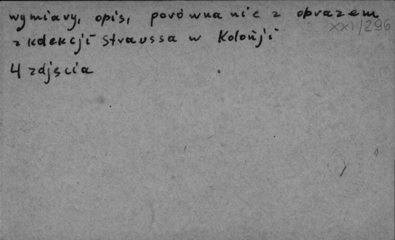 wymiary, opis, porównanie z obrazem
XXI/296
z kolekcji Straussa w Kolonji
4 zdjęcia